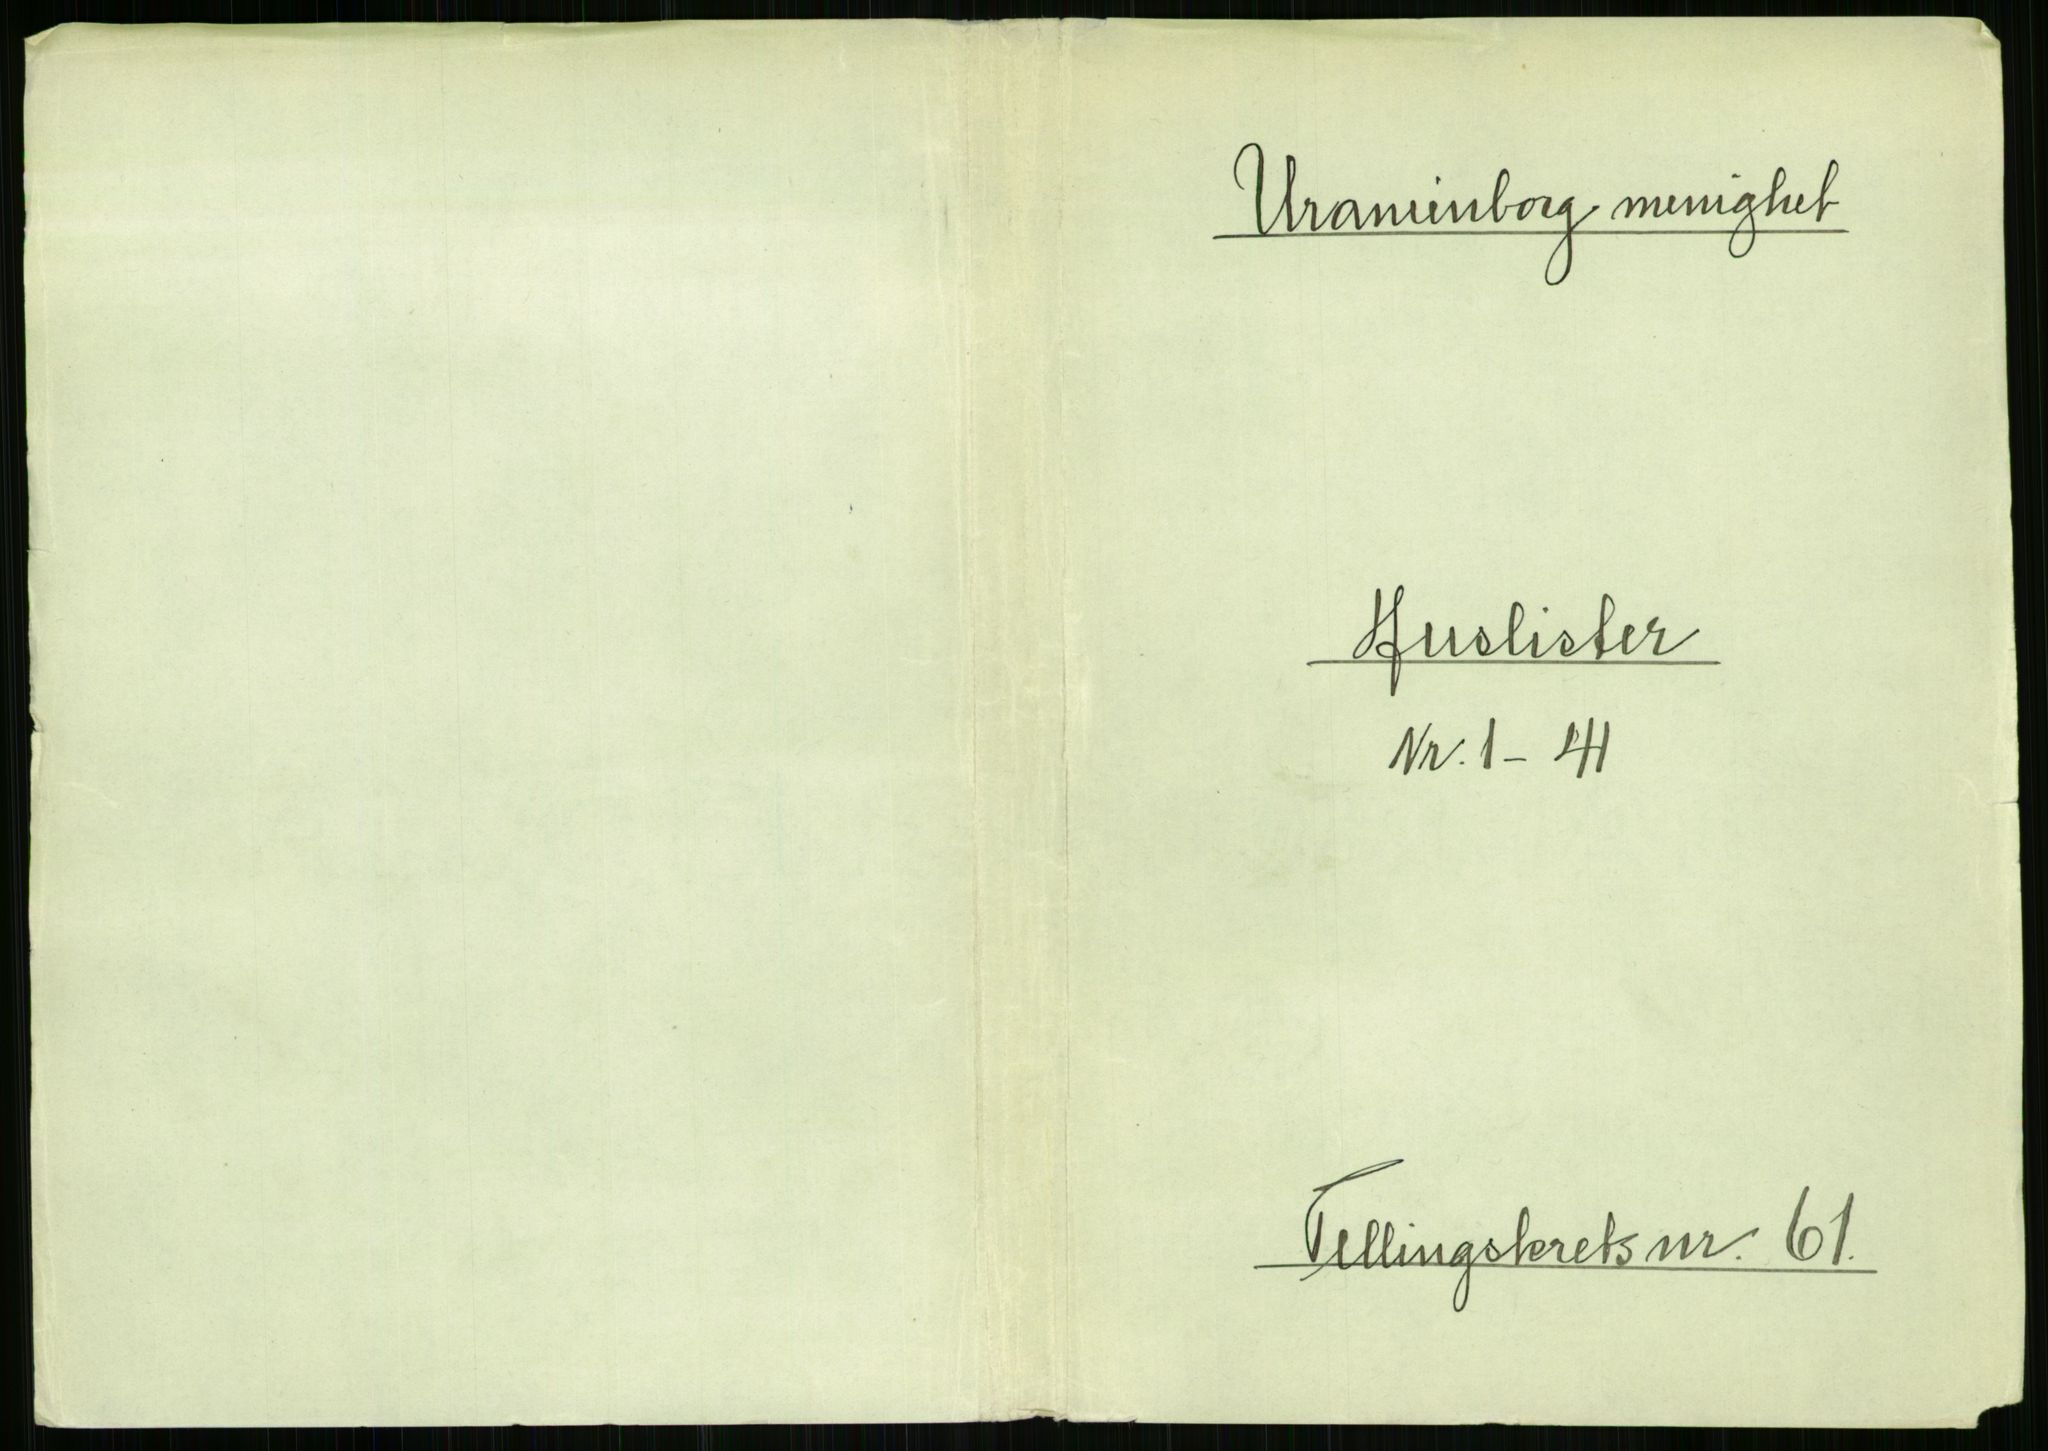 Uranienborg menighet
Huslister
Nr. 1 - 41
Tellingskrets nr. 61.